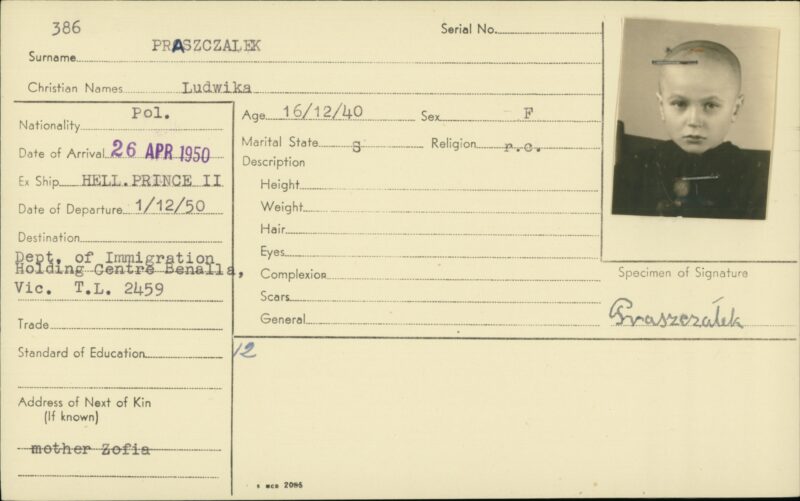 386
Serial No.
Surname PRASZCZALEK
Christian Names Ludwika
Nationality Pol.
Date of Arrival 26 APR 1950
Ex Ship HELL.PRINCE II
Date of Departure 1/12/50
Destination
Dept. of Immigration
Holding Centre Benalla,
Vic. T.L. 2459
Trade
Standard of Education
Address of Next of Kin
(If known)
mother Zofia
Age 16/12/40 Sex F
Marital State S Religion r.c.
Description
Height
Weight
Hair
Eyes
Complexion
Scars
General
12
Specimen of Signature
Praszczałek
s MCD 2086